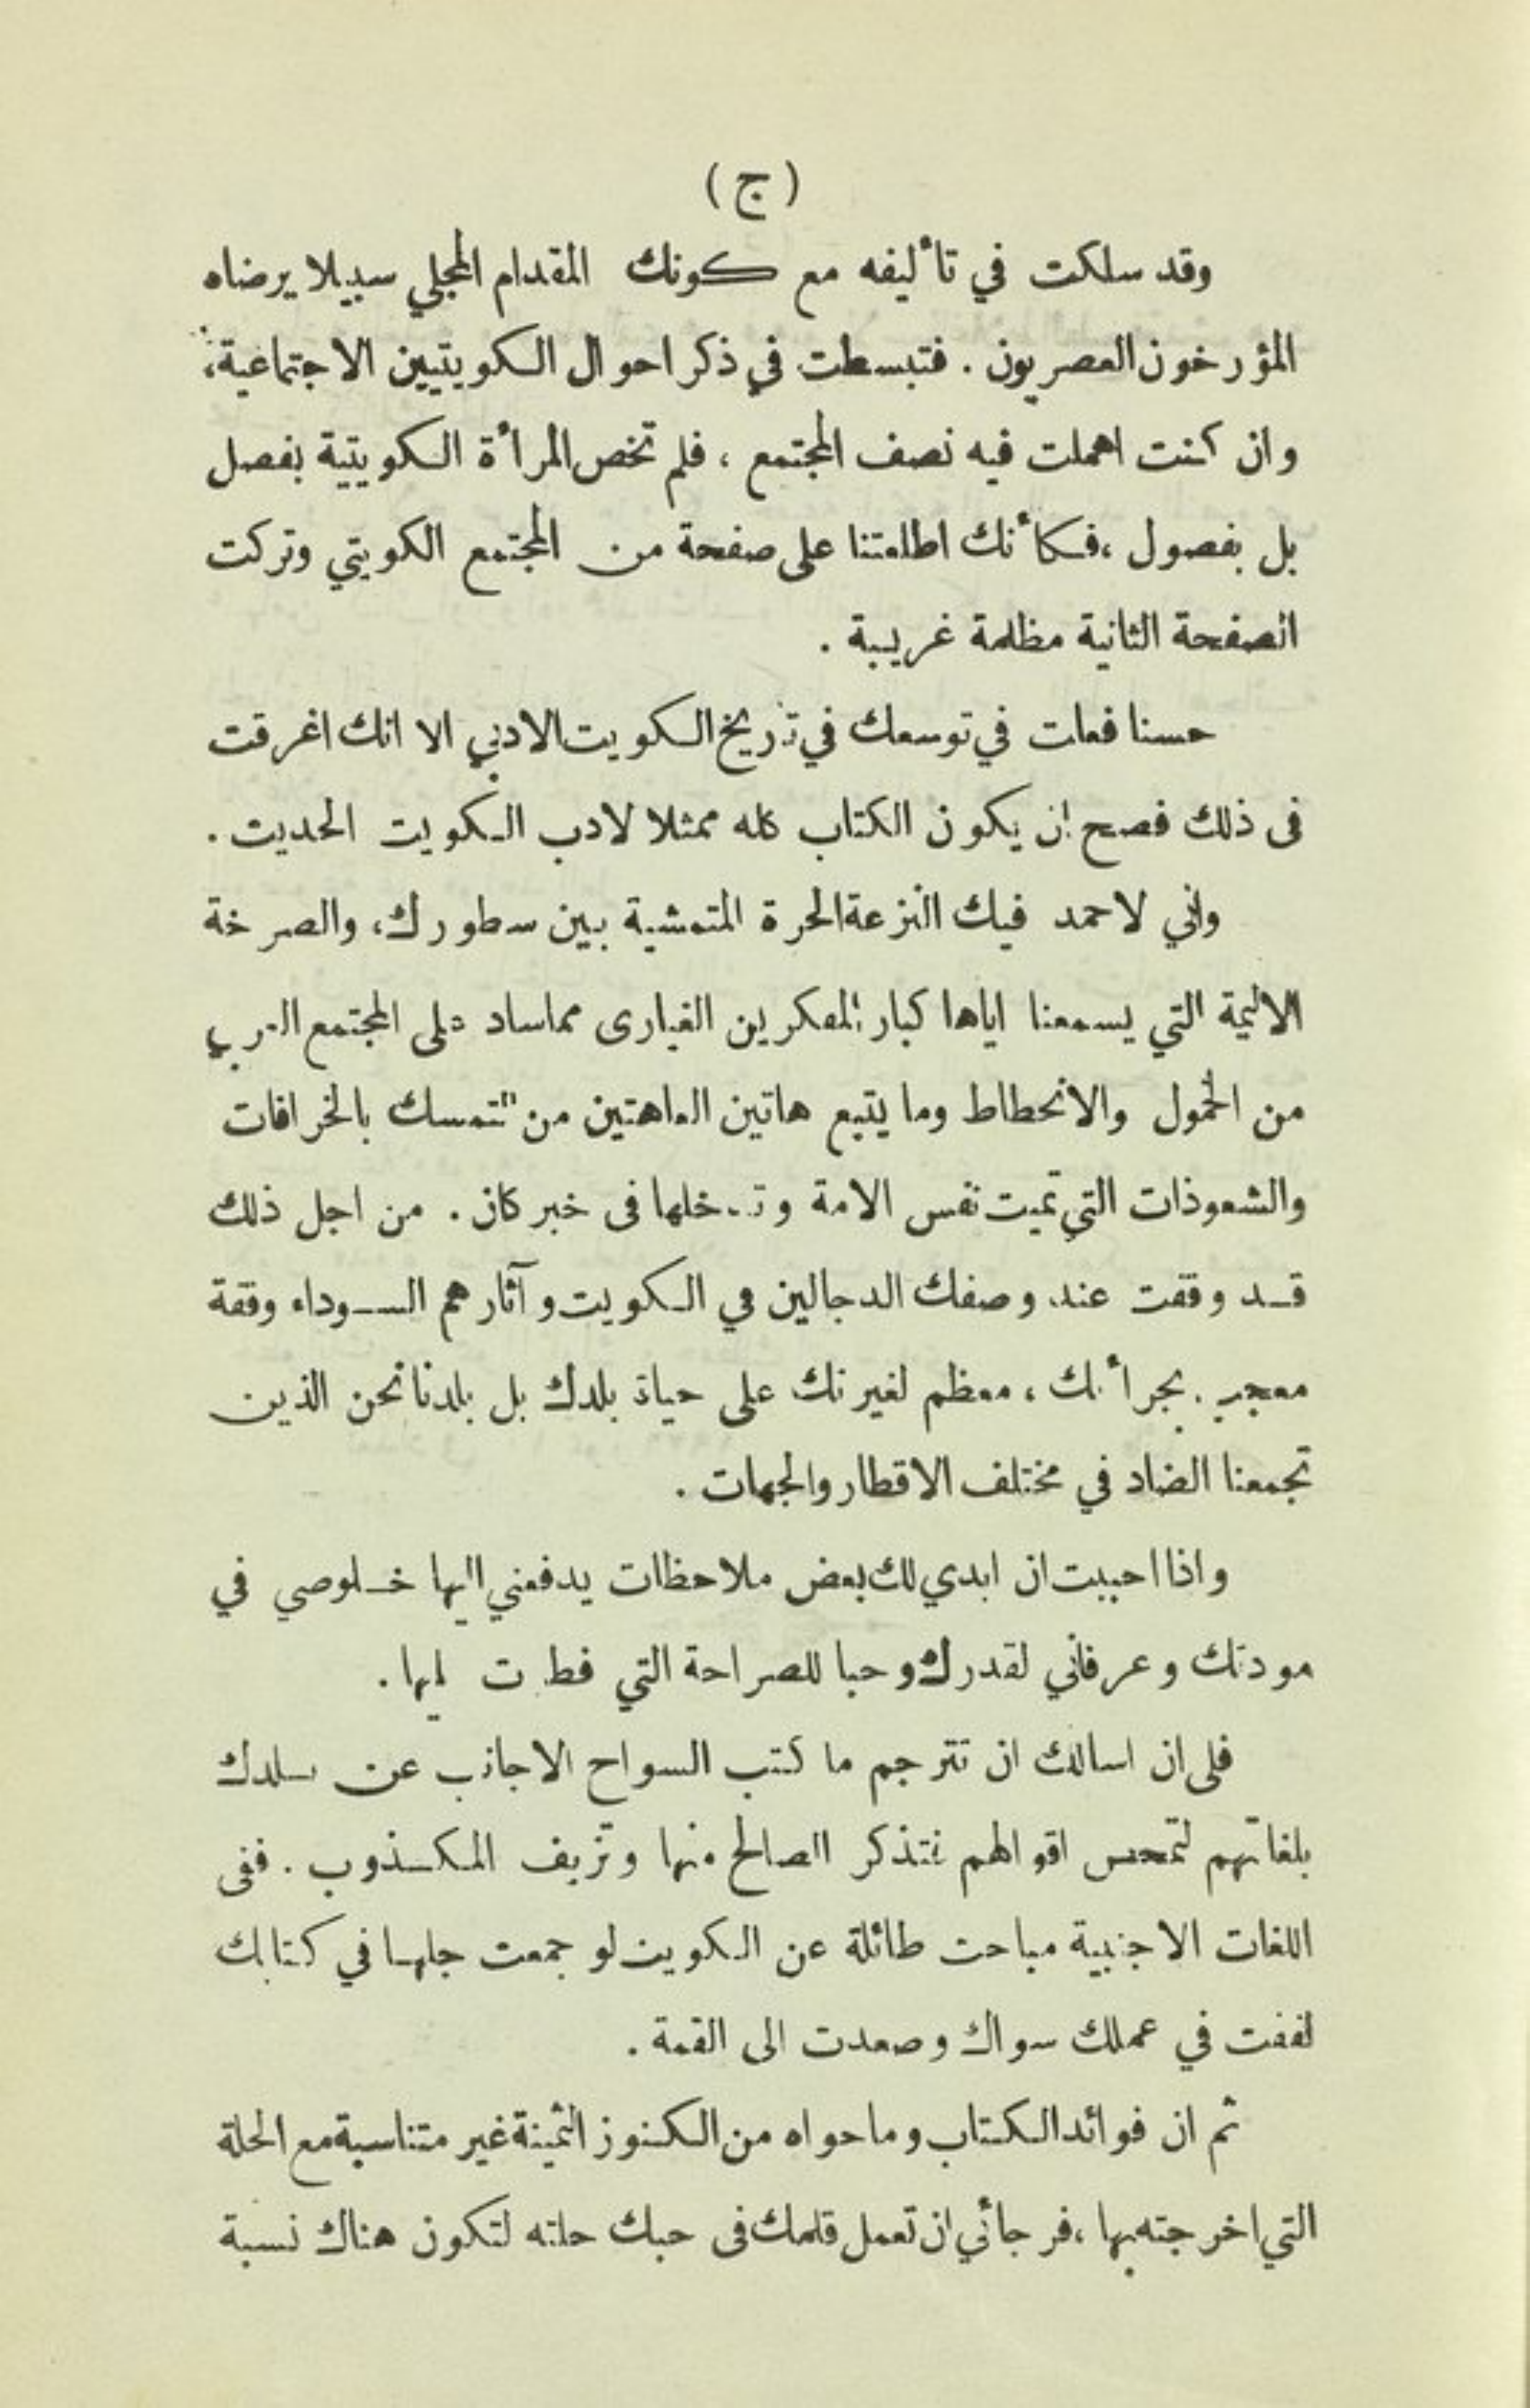 ( ج )
وقد سلكت في تأليفه مع كونك المقدام المجلي سبيلا يرضاه
المؤرخون العصريون . فتبسطت في ذكر احوال الكويتيين الاجتماعية،
وان كنت اهملت فيه نصف المجتمع ، فلم تخص المرأة الكويتية بفصل
بل بفصول ، فكأنك اطلعتنا على صفحة من المجتمع الكويتي وتركت
الصفحة الثانية مظلمة غريبة .
حسنا فعلت في توسعك في تاريخ الكويت الادبي الا انك اغرقت
فى ذلك فصح ان يكون الكتاب كله ممثلا لادب الكويت الحديث .
واني لاحمد فيك النزعة الحرة المتمشية بين سطورك، والصرخة
الاليمة التي يسمعنا اياها كبار المفكرين الغيارى مماساد على المجتمع العربي
من الخمول والانحطاط وما يتبع هاتين العاهتين من التمسك بالخرافات
والشعوذات التي تميت نفس الامة وتدخلها فى خبر كان . من اجل ذلك
قد وقفت عند وصفك الدجالين في الكويت و آثارهم السوداء وقفة
معجب بجرأتك ، معظم لغيرتك على حياة بلدك بل بلدنا نحن الذين
تجمعنا الضاد في مختلف الاقطار والجهات .
واذا احببت ان ابدي لك بعض ملاحظات يدفعني اليها خلوصي في
مودتك وعرفاني لقدرك وحبا للصراحة التي فطرت عليها .
فلى ان اسالك ان تترجم ما كتب السواح الاجانب عن بلدك
بلغاتهم لتمحص اقوالهم فتذكر الصالح منها وتزيف المكذوب . ففى
اللغات الاجنبية مباحث طائلة عن الكويت لو جمعت جلها في كتابك
لففت في عملك سواك وصعدت الى القمة .
ثم ان فوائد الكتاب وما حواه من الكنوز الثمينة غير متناسبة مع الحلة
التي اخرجته بها ، فرجائي ان تعمل قلمك فى حبك حلته لتكون هناك نسبة